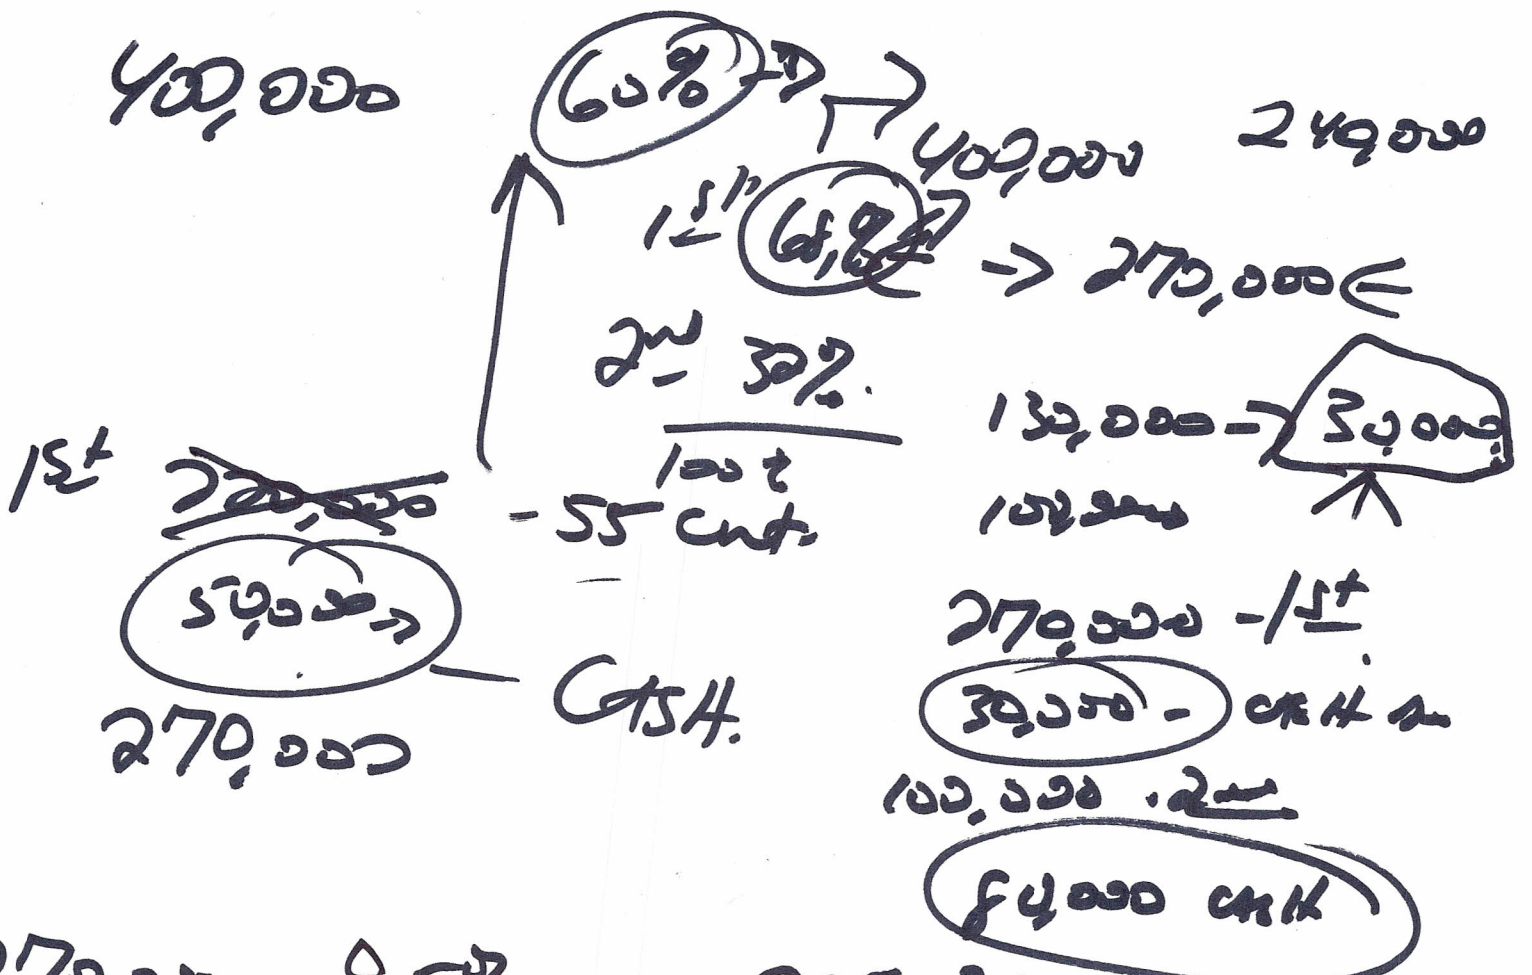 400,000
60% →
400,000
240,000
1st
→ 270,000
2nd 30%.
130,000 → 30,000
100 %
1st 220,000
- 55 Cnt.
100,000
50,000 →
CASH.
270,000 - 1st
270,000
30,000 - CASH
100,000 . 2nd
80,000 CASH